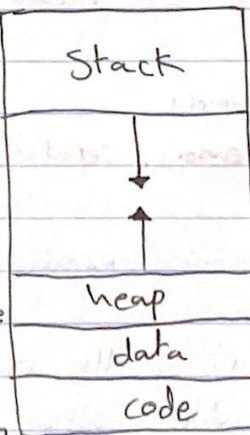 Stack
heap
data
code